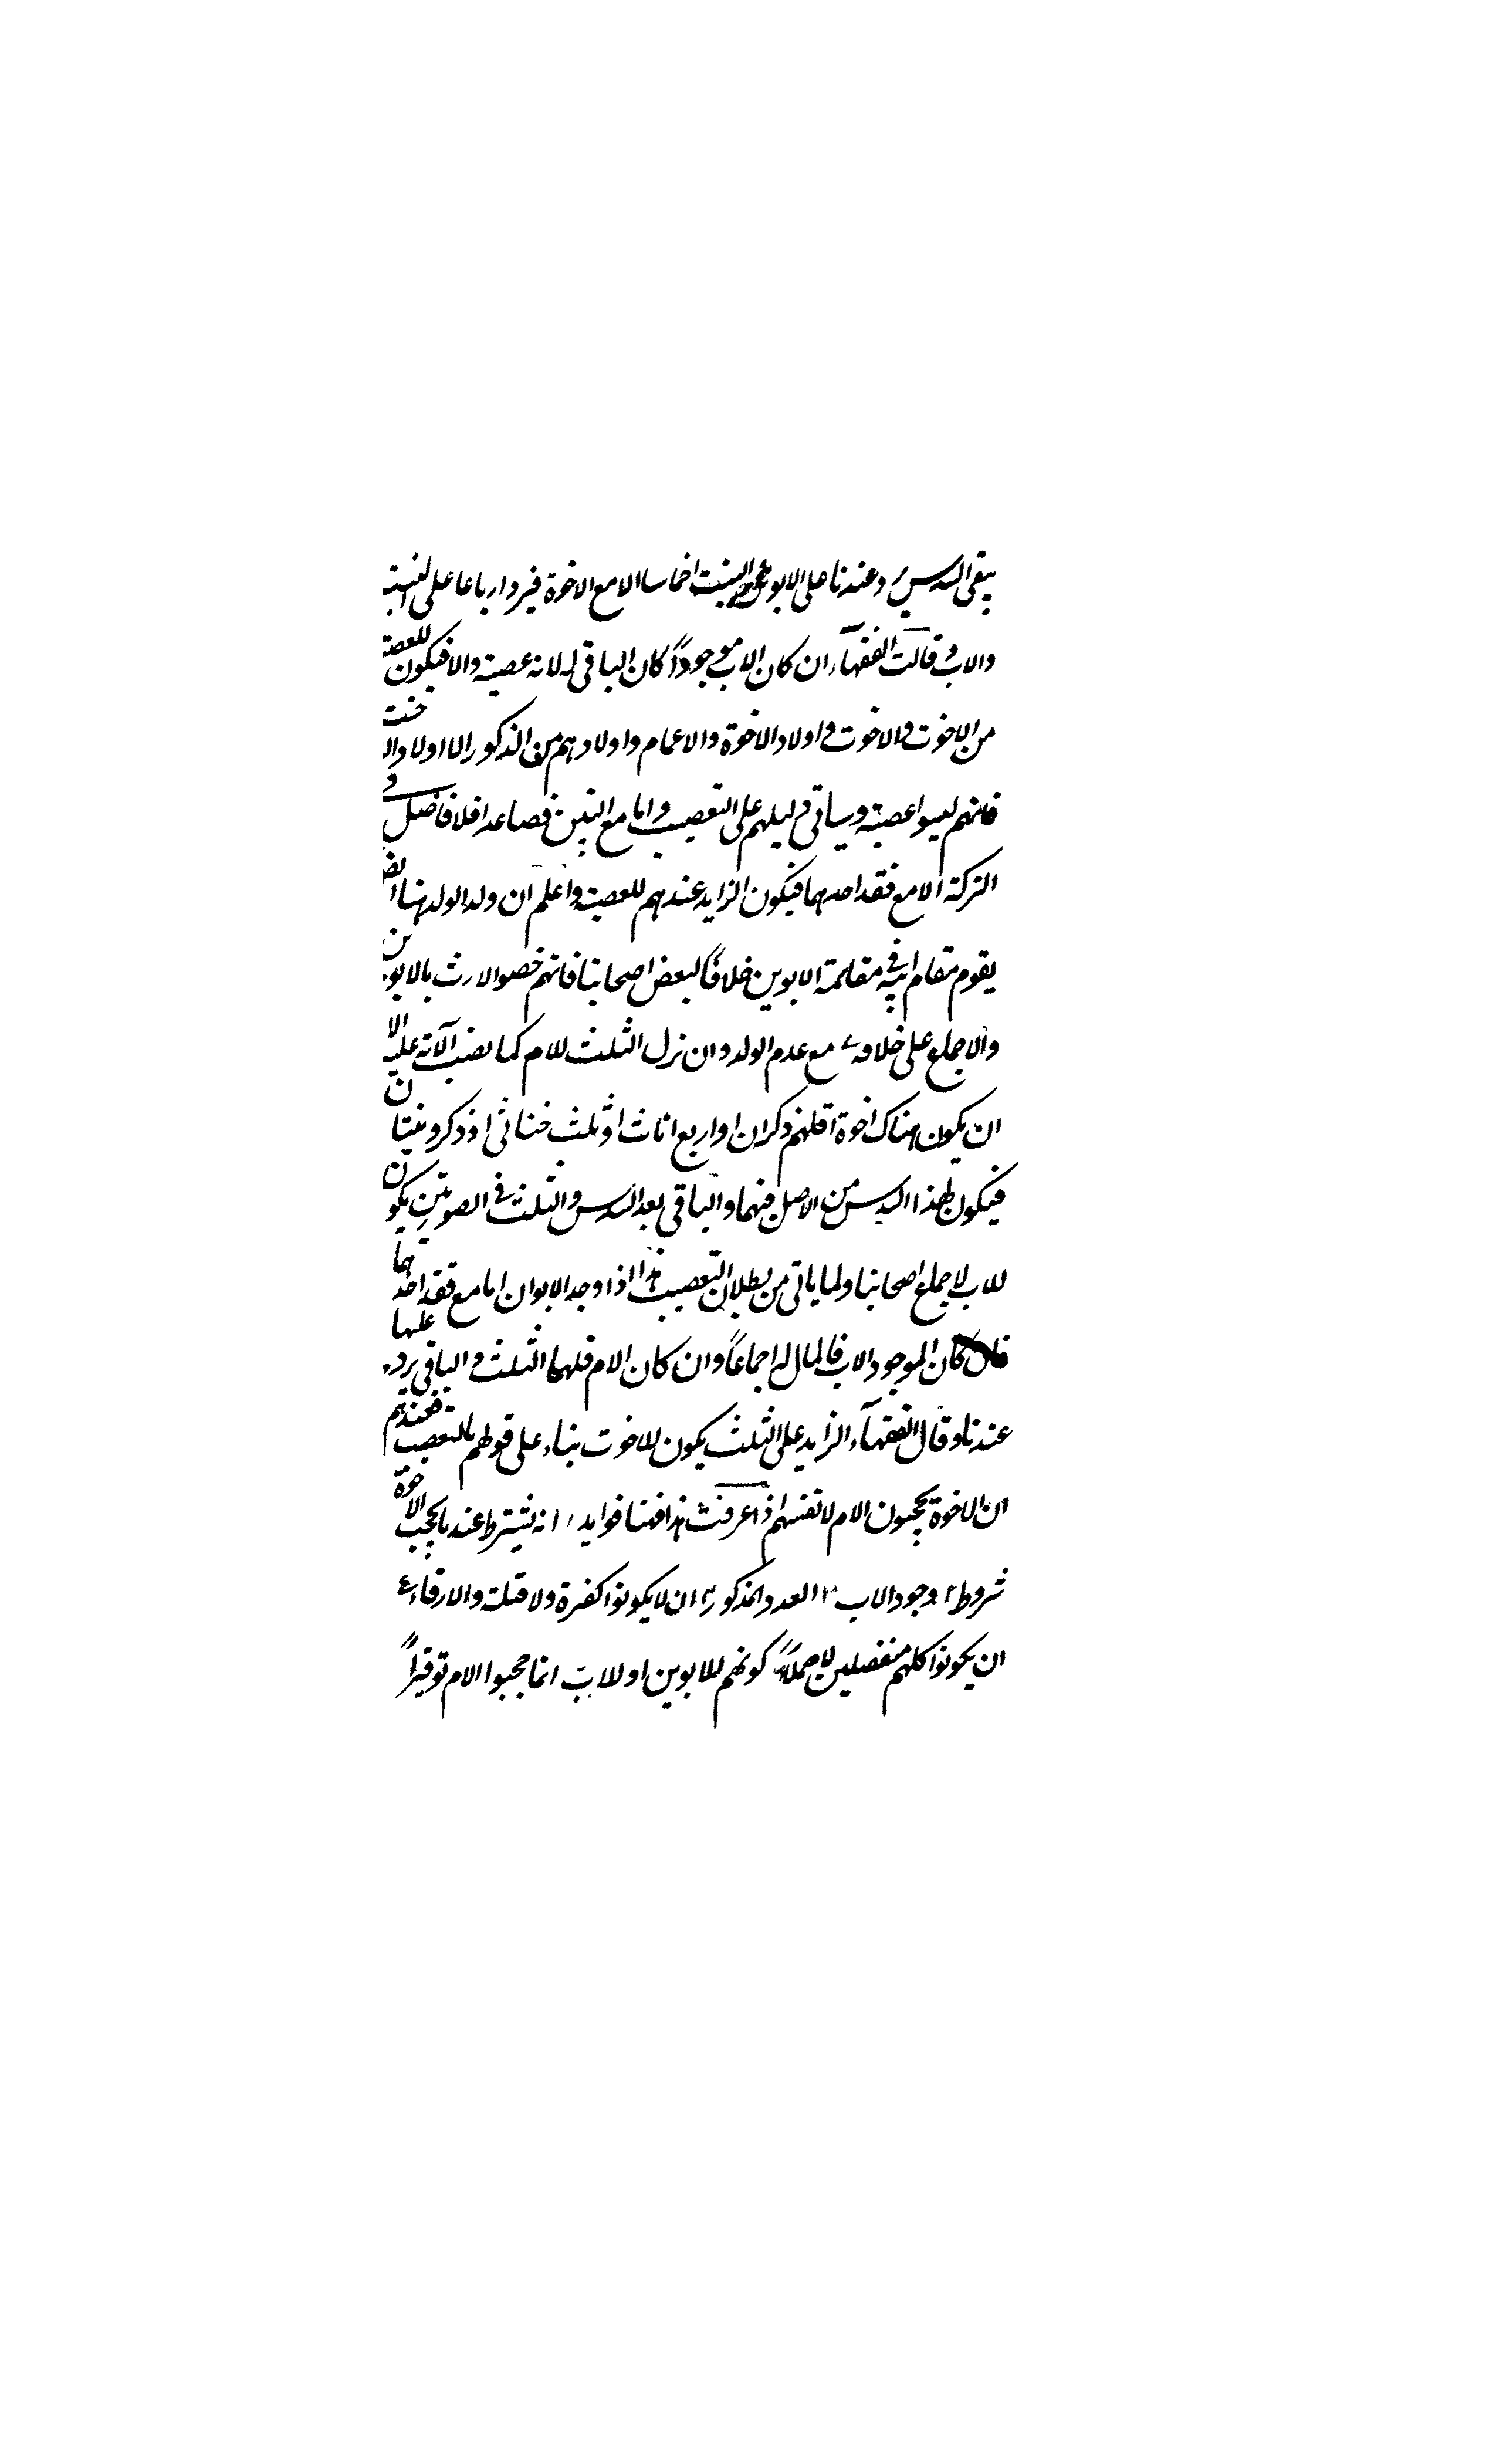 يبقى السدس يرد عندنا على الابوين والبنت اخماسا الا مع الاخوة فيرد ارباعا على البنت
والاب و قالت الفقهآء ان كان الاب موجوداً كان الباقى له لانه عصبة والا فيكون للعصبة
من الاخوت و الاخوت و اولاد الاخوة والاعمام واولادهم من الذكور الا اولاد الاخت
فانهم ليسوا عصبة وسياتى دليلهم على التعصيب واما مع البنتين فصاعدا فلا فاضل فى
التركة الا مع فقد احدهما فيكون الزايد عندهم للعصبة واعلم ان ولد الولد هنا ايضا
يقوم مقام ابيه فى مقاسمة الابوين خلافاً لبعض اصحابنا فانهم خصوا الارث بالابوين
والاجماع على خلافه مع عدم الولد وان نزل الثلث للام كما نصت الآية عليه الا
ان يكون هناك اخوة اقلهم ذكران او اربع اناث او ثلث خناثى او ذكر وبنتان
فيكون لها السدس من الاصل فيهما والباقى بعد السدس والثلث فى الصورتين يكون
للاب لاجماع اصحابنا ولما ياتى من بطلان التعصيب هذا اذا وجد الابوان اما مع فقد احدهما
فان كان الموجود الاب فالمال له اجماعاً وان كان الام فلها الثلث والباقى يرد عليها
عندنا وقال الفقهآء الزايد على الثلث يكون للاخوت بناء على قولهم بالتعصيب فعندهم
ان الاخوة يحجبون الام لانفسهم اذا عرفت هذا فهنا فوايد ١ انه يشترط عندنا لحجب الاخوة
شروط ١ وجود الاب ٢ العدد المذكور ٣ ان لا يكونوا كفرة ولا قتلة والا ارقاء ٤
ان يكونوا كلهم منفصلين لا حملاً كونهم للابوين او للاب انما حجبوا الام توقيراً